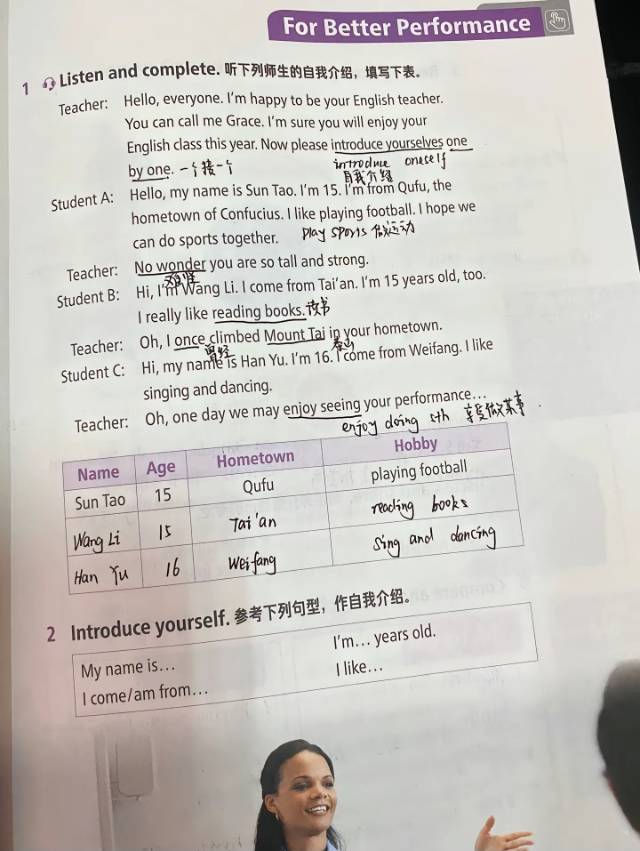 For Better Performance
1 Listen and complete. 听下列师生的自我介绍，填写下表。
Teacher: Hello, everyone. I'm happy to be your English teacher.
You can call me Grace. I'm sure you will enjoy your
English class this year. Now please introduce yourselves one
introduce oneself
by one. 一个接一个
自我介绍
Student A: Hello, my name is Sun Tao. I'm 15. I'm from Qufu, the
hometown of Confucius. I like playing football. I hope we
can do sports together. play sports 做运动
Teacher: No wonder you are so tall and strong.
难怪
Student B: Hi, I'm Wang Li. I come from Tai'an. I'm 15 years old, too.
I really like reading books. 读书
Teacher: Oh, I once climbed Mount Tai in your hometown.
曾经 泰山
Student C: Hi, my name is Han Yu. I'm 16. I come from Weifang. I like
singing and dancing.
Teacher: Oh, one day we may enjoy seeing your performance…
enjoy doing sth 享受做某事
Name Age Hometown Hobby
Sun Tao 15 Qufu playing football
Wang Li 15 Tai'an reading books
Han Yu 16 Weifang Sing and dancing
2 Introduce yourself. 参考下列句型，作自我介绍。
My name is… I'm… years old.
I come/am from… I like…